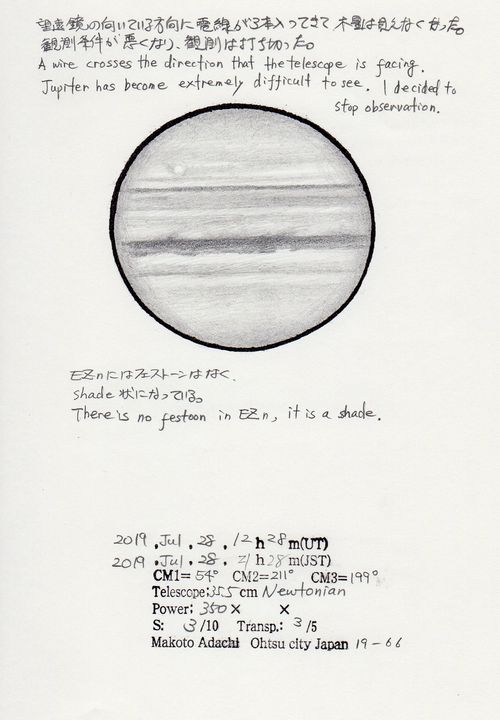 望遠鏡の向いている方向に電線が3本入ってきて 木星は見えなくなった。
観測条件が悪くなり、観測は打ち切った。
A wire crosses the direction that the telescope is facing.
Jupiter has become extremely difficult to see. I decided to
stop observation.
EZnにはフェストーンはなく、
shade 状になっている。
There is no festoon in EZn, it is a shade.
2019 , Jul , 28 , 12 h 28 m(UT)
2019 , Jul , 28 , 21 h 28 m(JST)
CM1= 54° CM2= 211° CM3= 199°
Telescope: 355 cm Newtonian
Power: 350 × ×
S: 3 /10 Transp.: 3 /5
Makoto Adachi Ohtsu city Japan 19-66